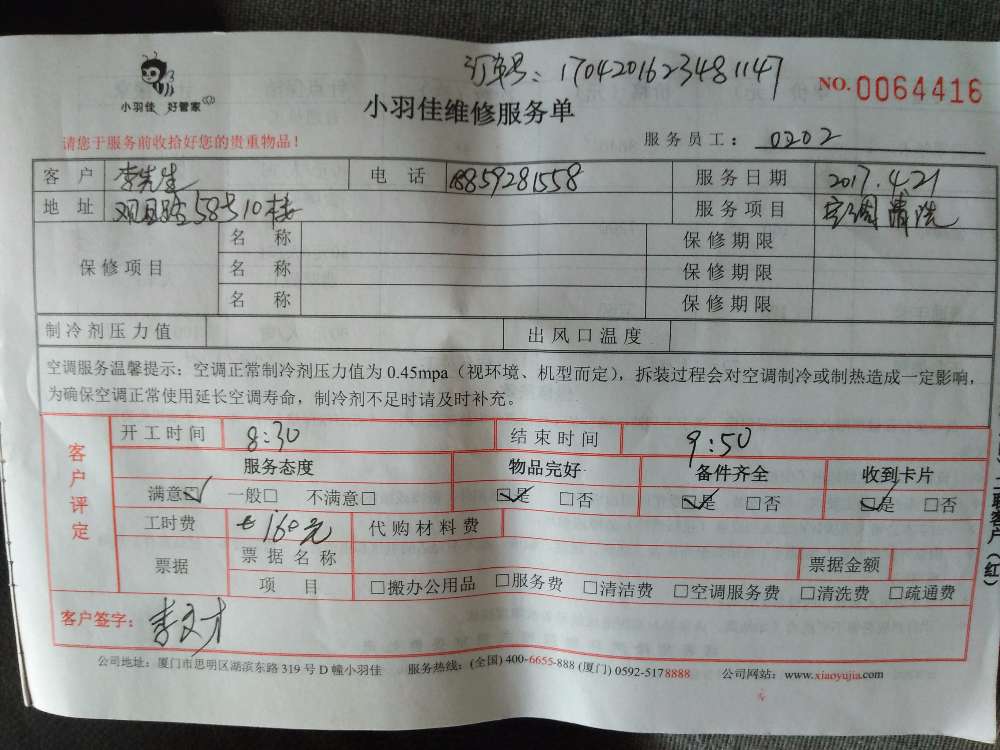 订单号：1704201623481147
小羽佳 好管家
小羽佳维修服务单
NO. 0064416
请您于服务前收拾好您的贵重物品！
服务员工： 0202
客户 李先生 电话 18859281558 服务日期 2017.4.21
地址 58号10栋 服务项目 空调清洗
保修项目
名称 保修期限
名称 保修期限
名称 保修期限
制冷剂压力值 出风口温度
空调服务温馨提示：空调正常制冷剂压力值为 0.45mpa（视环境、机型而定），拆装过程会对空调制冷或制热造成一定影响，
为确保空调正常使用延长空调寿命，制冷剂不足时请及时补充。
客户评定
开工时间 8:30 结束时间 9:50
服务态度 物品完好 备件齐全 收到卡片
满意☑ 一般□ 不满意□ ☑是 □否 ☑是 □否 ☑是 □否
工时费 160元 代购材料费
票据 票据名称 票据金额
项目 □搬办公用品 □服务费 □清洁费 □空调服务费 □清洗费 □疏通费
客户签字： 李文才
公司地址：厦门市思明区湖滨东路 319 号 D 幢小羽佳 服务热线：(全国) 400-6655-888 (厦门) 0592-5178888 公司网站：www.xiaoyujia.com
联客户（红）